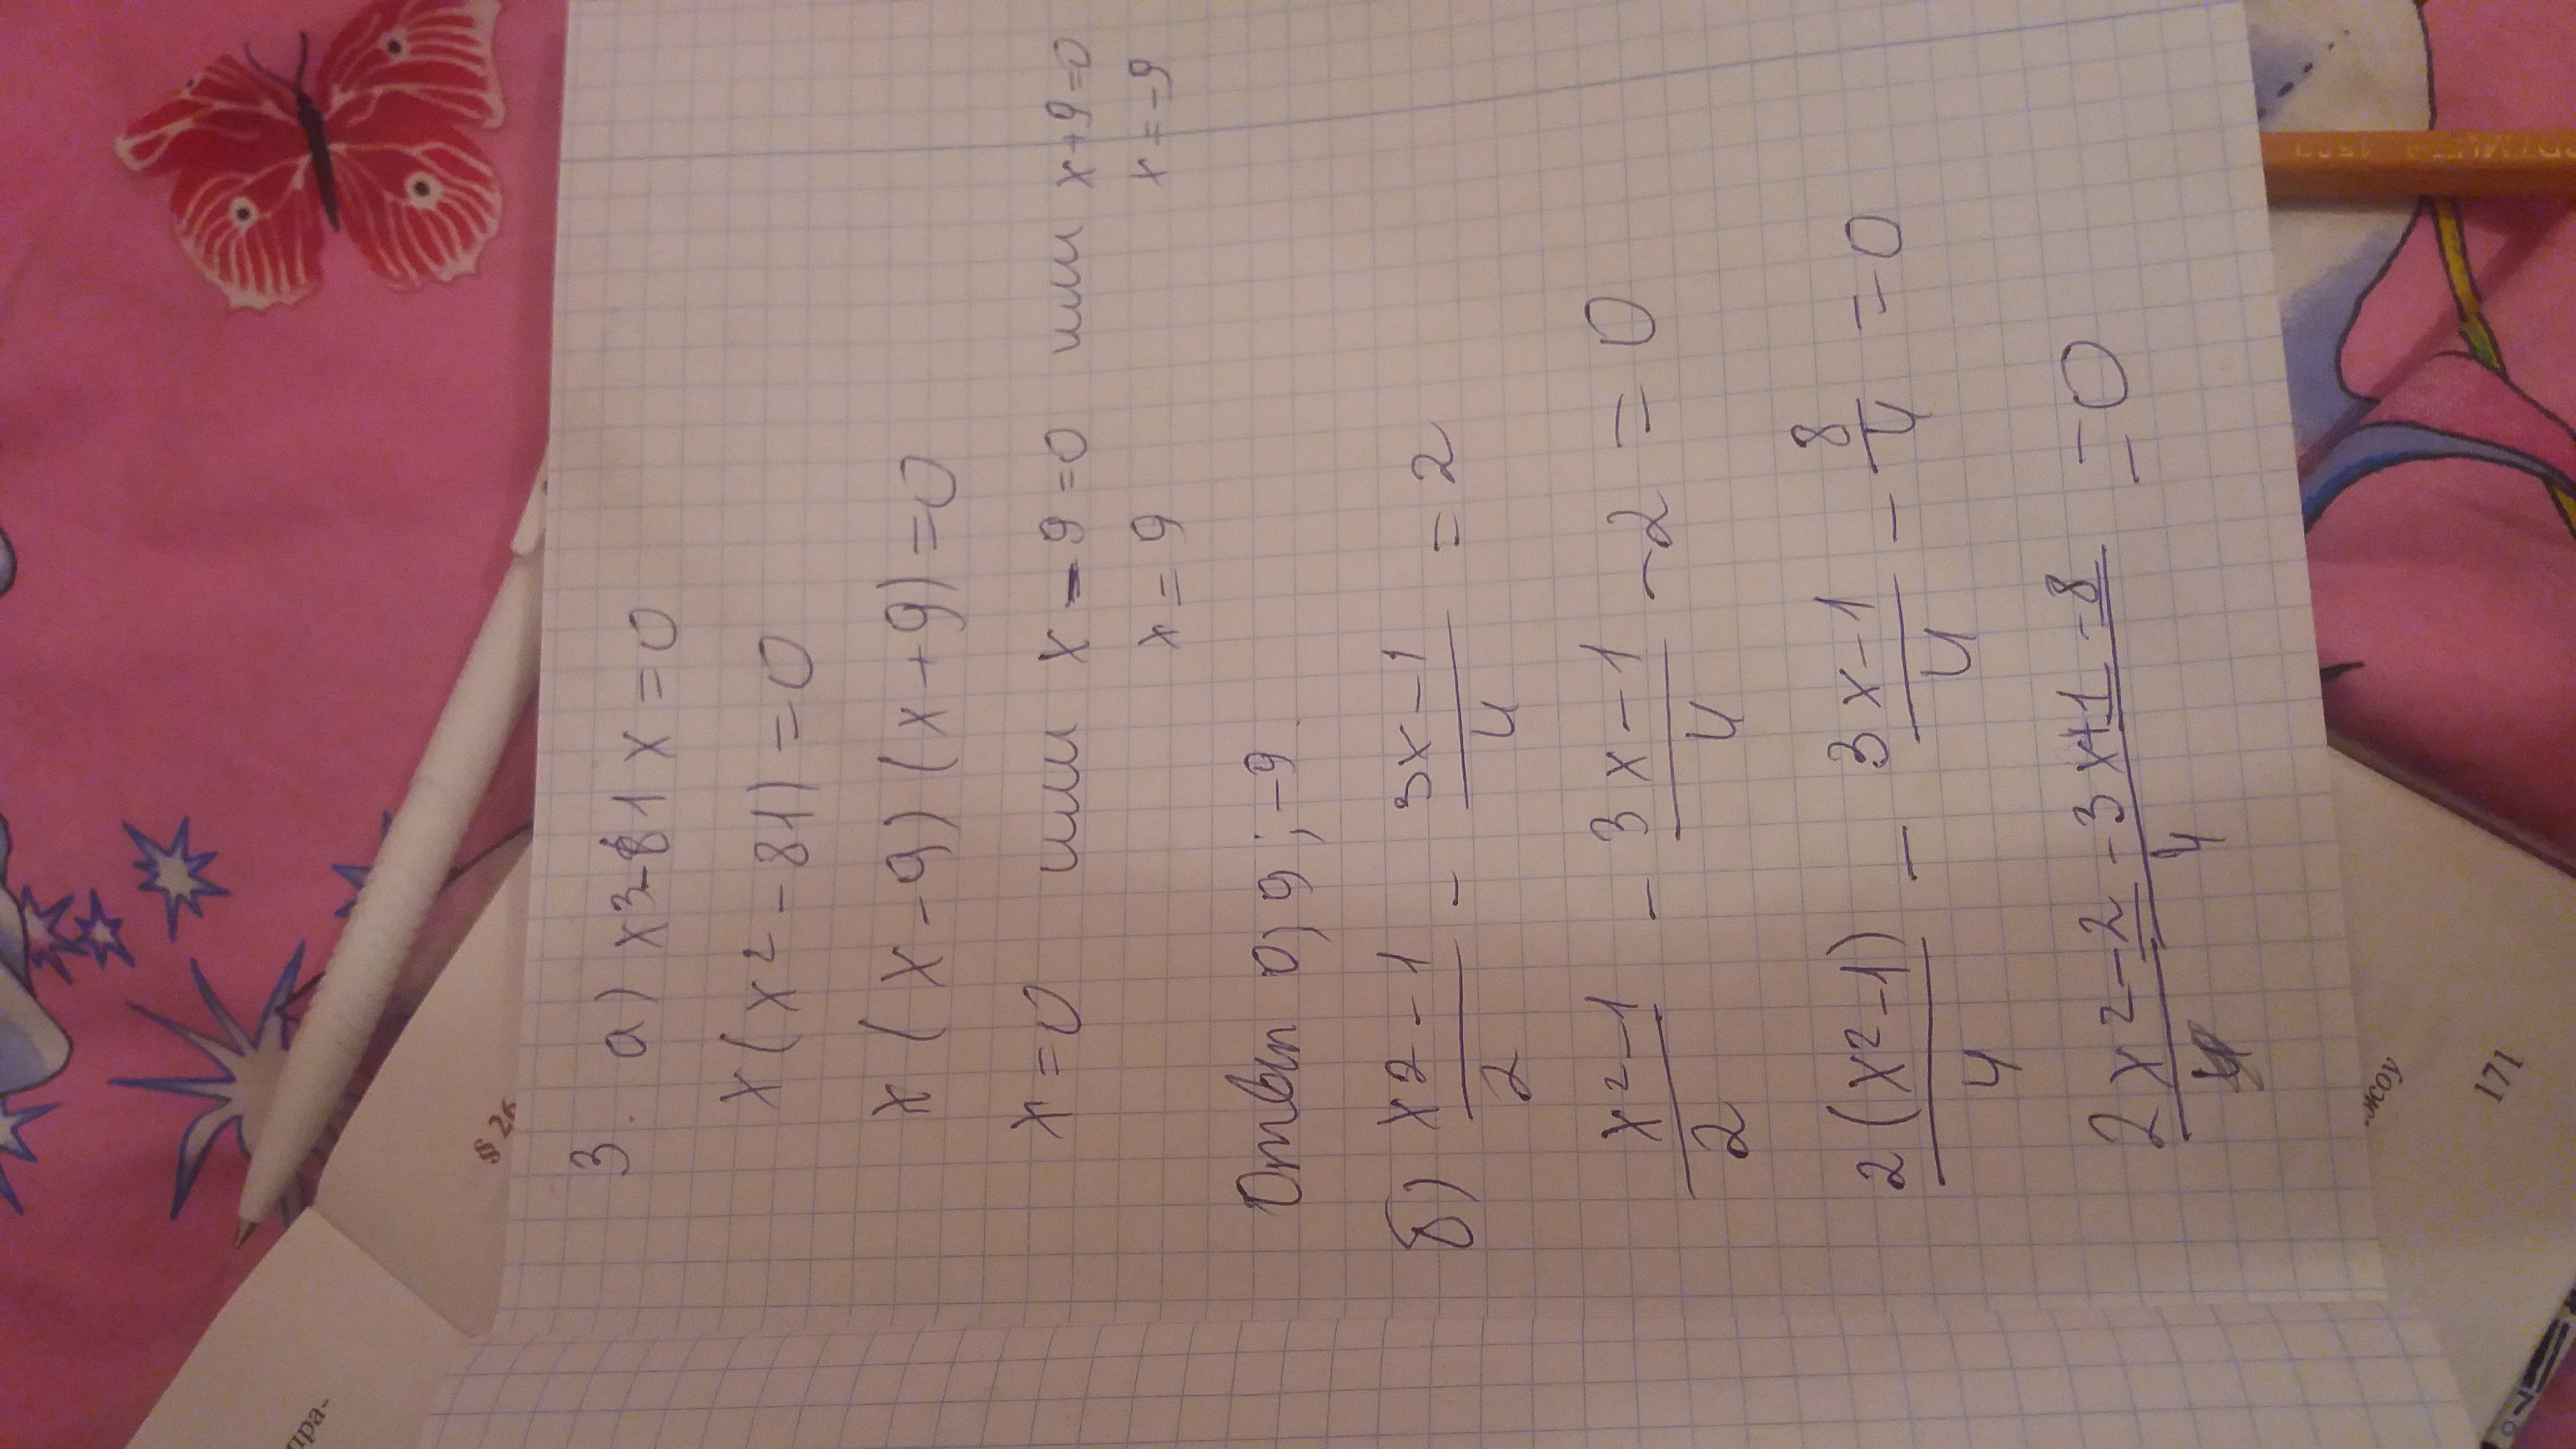 3. а) x3-81x=0
x(x²-81)=0
x(x-9)(x+9)=0
x=0 или x-9=0 или x+9=0
x=9 x=-9
Ответ 0; 9; -9
б) x2-1/2 - 3x-1/4 = 2
x²-1/2 - 3x-1/4 -2 = 0
2(x²-1)/4 - 3x-1/4 - 8/4 = 0
2x²-2-3x+1-8/4 = 0
§ 26
пра-
жоу
171